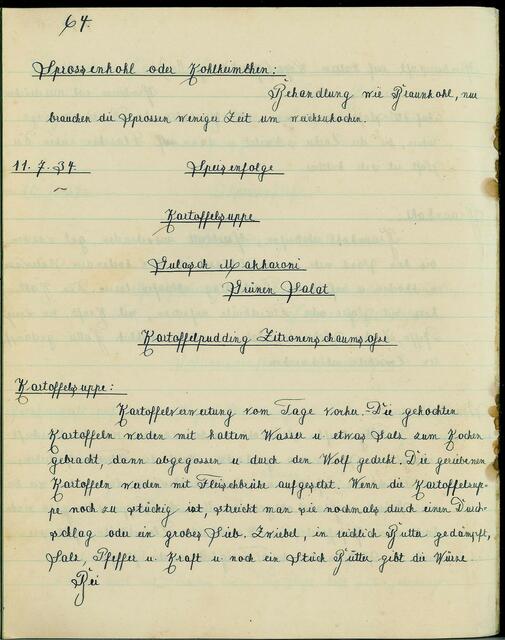 64.
Sprossenkohl oder Kohlkeimchen:
Behandlung wie Braunkohl, nur
brauchen die Sprossen weniger Zeit um weichzukochen.
11.7.34. Speisenfolge
~
Kartoffelsuppe
Gulasch Makkaroni
Grünen Salat
Kartoffelpudding Zitronenschaumsoße
Kartoffelsuppe:
Kartoffelverwertung vom Tage vorher. Die gekochten
Kartoffeln werden mit kaltem Wasser u. etwas Salz zum Kochen
gebracht, dann abgegossen u. durch den Wolf gedreht. Die geriebenen
Kartoffeln werden mit Fleischbrühe aufgesetzt. Wenn die Kartoffelsup-
pe noch zu stückig ist, streicht man sie nochmals durch einen Durch-
schlag oder ein grobes Sieb. Zwiebel, in reichlich Butter gedämpft,
Salz, Pfeffer u. Kraft u. noch ein Stück Butter gibt die Würze.
Bei